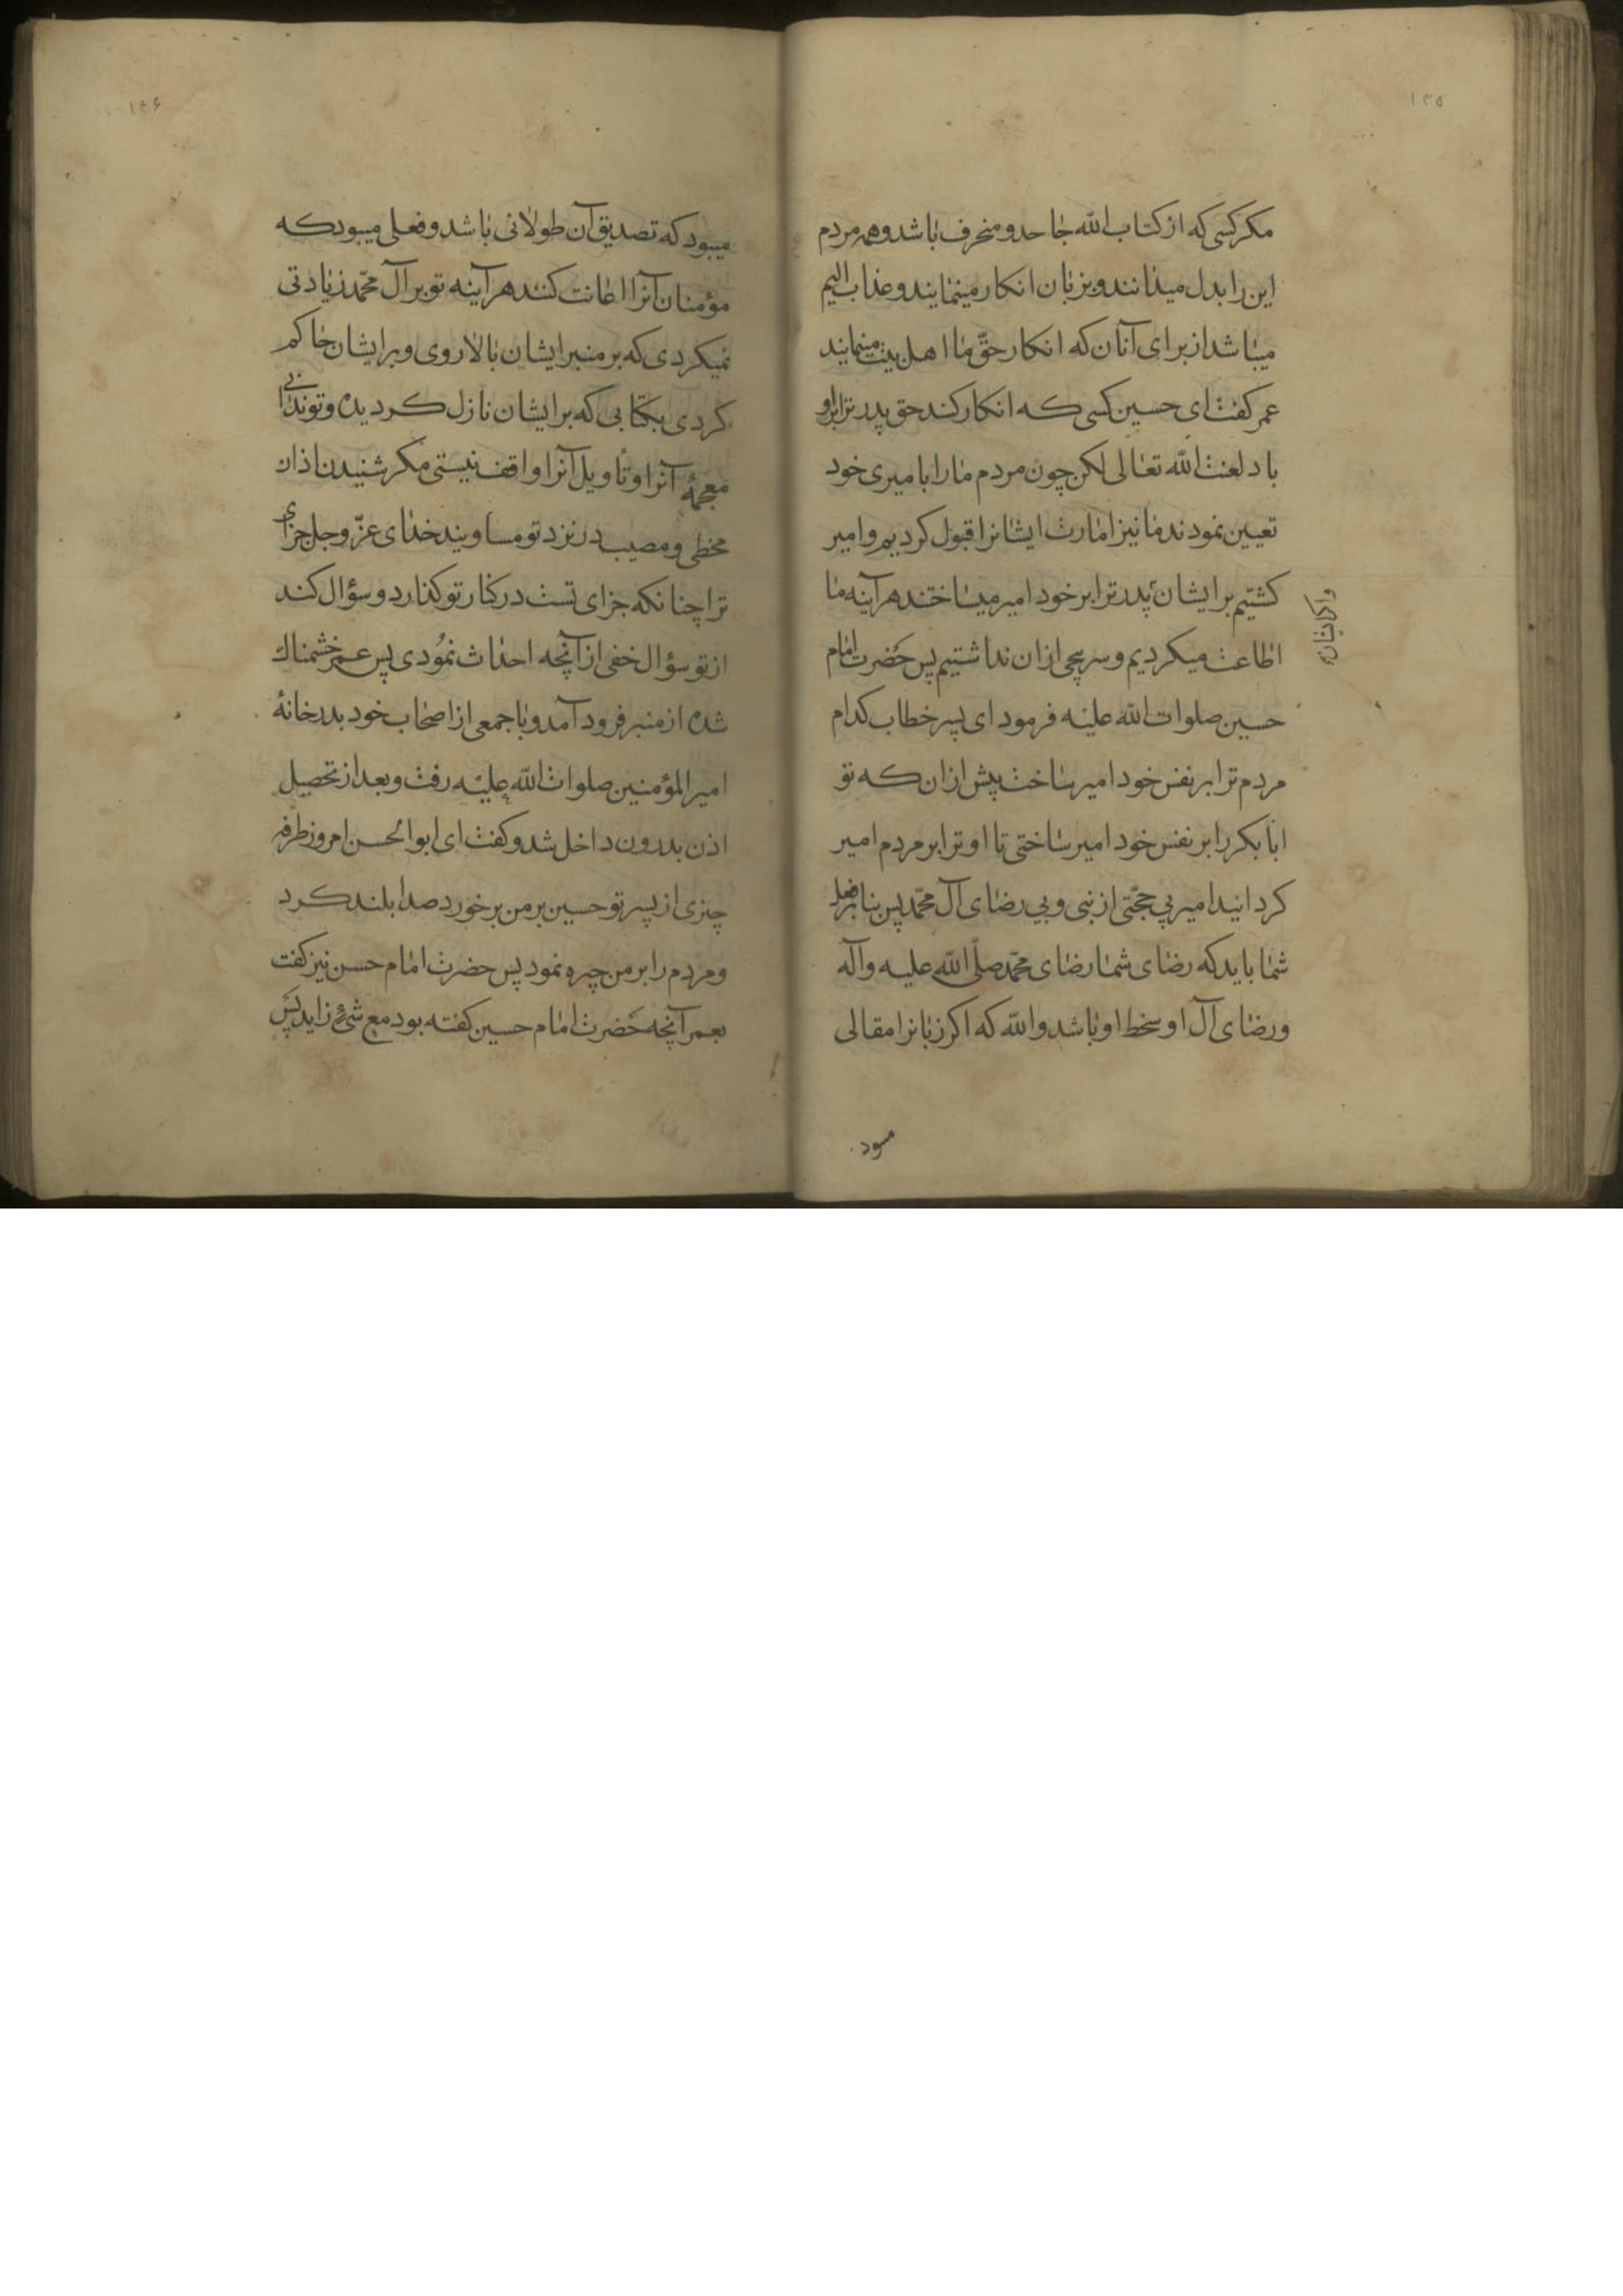 ۱۳۵
مکر کسی که از کتاب الله جاحد و منحرف باشد و همه مردم
این را بدل میدانند و بزبان انکار مینمایند و عذاب الیم
میباشد از برای آنان که انکار حقّ ما اهل بیت مینمایند
عمر کفت ای حسین کسی که انکار کند حق پدر ترا بر او
باد لعنت الله تعالی لکن چون مردم ما را بامیری خود
تعیین نمودند ما نیز امارت ایشانرا قبول کردیم و امیر
کشتیم بر ایشان پدر ترا بر خود امیر میساختند هرآینه ما
واکرایشان
اطاعت میکردیم و سرپیچی ازان نداشتیم پس حَضرت امام
حسین صلوات الله علیه فرمود ای پسر خطاب کدام
مردم ترا بر نفس خود امیر ساخت پیش ازان که تو
ابا بکر را بر نفس خود امیر ساختی تا او ترا بر مردم امیر
کردانید امیر بی حجّتی از نبی و بی رضای آل محمّد پس بنابر فعل
شما باید که رضای شما رضای محمّد صلّی الله علیه وآله
و رضای آل او سخط او باشد والله که اکر زبانرا مقالی
میبود
۱۳۶
میبود که تصدیق آن طولانی باشد و فعلی میبود که
مؤمنان آنرا اعانت کنند هرآینه تو بر آل محمّد زیادتی
نمیکردی که بر منبر ایشان بالا روی و بر ایشان حاکم
کردی بکتابی که بر ایشان نازل کردیده و تو ندانی
معجمهٔ آنرا و تأویل آنرا واقف نیستی مکر شنیدن اذان
مخطی و مصیب در نزد تو مساویند خدای عزّ و جل جزای
ترا چنانکه جزای تست در کنار تو کذارد و سؤال کند
از تو سؤال خفی از آنچه احداث نمُودی پس عمر خشمناک
شده از منبر فرود آمد و با جمعی از اصحاب خود بدر خانهٔ
امیر المؤمنین صلوات الله علیه رفت و بعد از تحصیل
اذن بدرون داخل شد و کفت ای ابو الحسن امروز طرفه
چیزی از پسر تو حسین بر من برخورد صدا بلند کرد
و مردم را بر من چیره نمود پس حضرت امام حسن نیز کفت
بعمر آنچه حَضرت امام حسین کفته بود مع شئ زاید پس